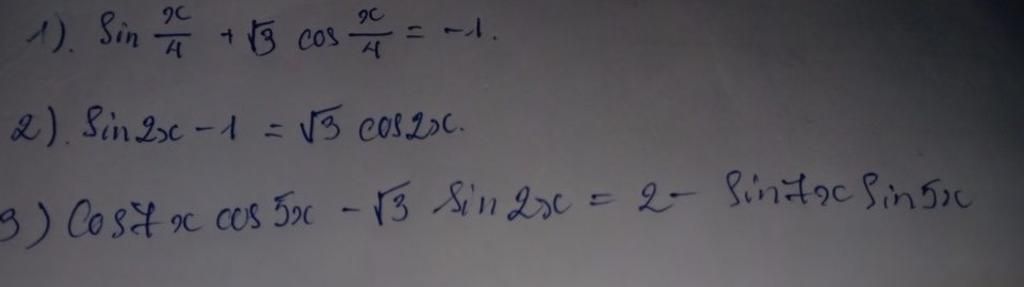 1). Sin x/4 + √3 cos x/4 = -1.
2). Sin2x - 1 = √3 cos2x.
3) Cos7x cos 5x - √3 Sin 2x = 2 - Sin7x Sin5x